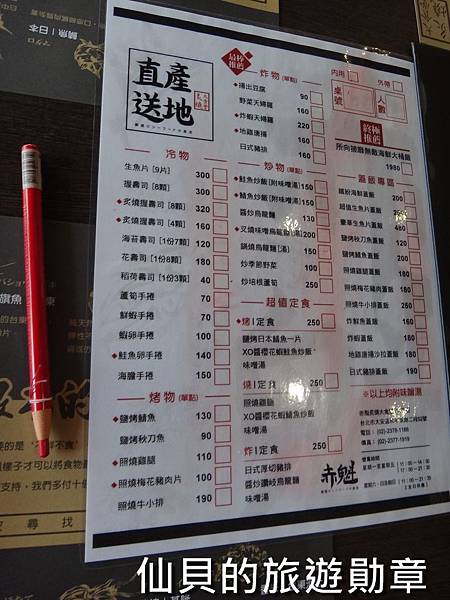 直產
送地
冷物
生魚片 [9片] 300
握壽司 [8顆] 300
◆炙燒握壽司 [8顆] 320
◆炙燒握壽司 [4顆] 160
海苔壽司 [1份7顆] 120
花壽司 [1份8顆] 180
稻荷壽司 [1份3顆] 40
蘆筍手捲 70
鮮蝦手捲 70
蝦卵手捲 90
◆鮭魚卵手捲 140
海膽手捲 150
烤物(單點)
◆鹽烤鯖魚 130
鹽烤秋刀魚 90
◆照燒雞腿 110
◆照燒梅花豬肉片 100
照燒牛小排 190
最極推薦
炸物(單點)
◆揚出豆腐 90
野菜天婦羅
◆炸蝦天婦羅 160
◆地雞唐揚 220
日式豬排 160
炒物(單點)
◆鮭魚炒飯[附味噌湯] 150
◆鮮蝦炒飯[附味噌湯] 150
醬炒烏龍麵
◆叉燒味噌烏龍麵(湯) 200
鍋燒烏龍麵[湯] 150
炒季節野菜 100
炒培根蘆筍
超值定食
◆烤|定食 250
鹽烤日本鯖魚一片
XO醬櫻花蝦鮭魚炒飯
味噌湯
燒|定食 250
照燒雞腿
XO醬櫻花蝦鯖魚炒飯
味噌湯
炸|定食 250
日式厚切豬排
醬炒讚岐烏龍麵
味噌湯
赤魁
內用
外帶
桌號
人數
終極推薦
所向披靡無敵海鮮大桶飯
1980
蓋飯專區
繽紛海鮮蓋飯
超值生魚片蓋飯
豪華生魚片蓋飯
鹽烤秋刀魚蓋飯
鹽烤鯖魚蓋飯
照燒雞腿蓋飯
照燒梅花豬肉蓋飯
照燒牛小排蓋飯
炸鮮魚蓋飯
炸蝦蓋飯
地雞唐揚沙拉蓋飯 180
日式豬排蓋飯 190
※以上均附味噌湯
營業時間
鯖魚|日本
仙貝的旅遊勛章